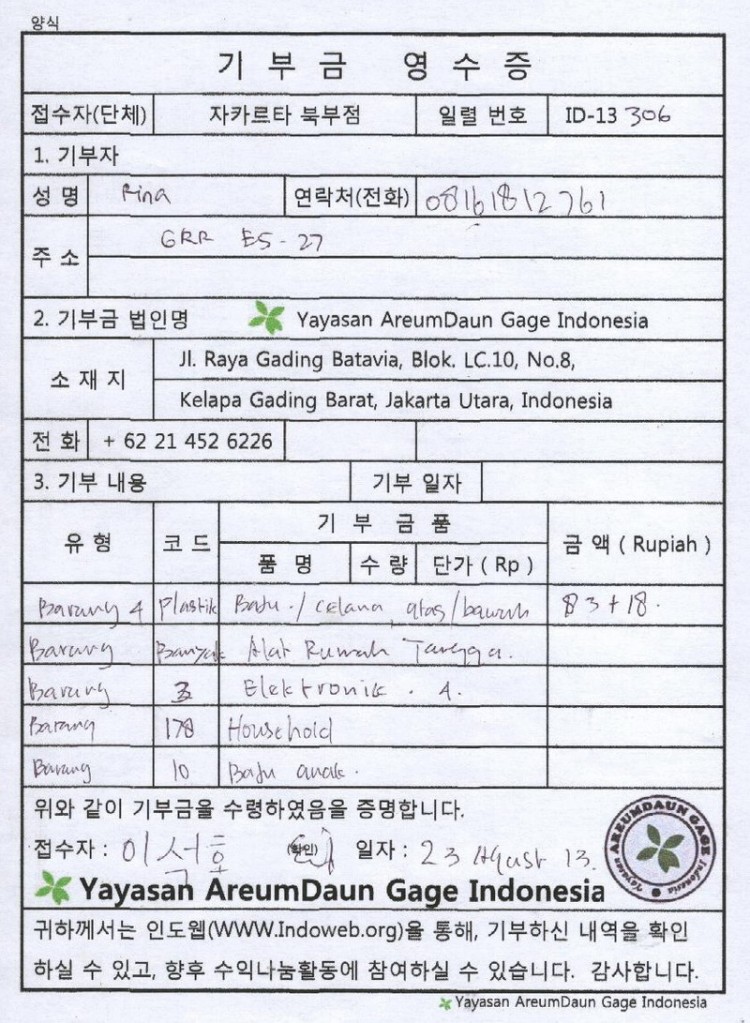 양식
기 부 금 영 수 증
접수자(단체) 자카르타 북부점 일렬 번호 ID-13 306
1. 기부자
성 명 Rina 연락처(전화) 08161812761
주 소 GRR E5-27
2. 기부금 법인명 Yayasan AreumDaun Gage Indonesia
소 재 지 Jl. Raya Gading Batavia, Blok. LC.10, No.8,
Kelapa Gading Barat, Jakarta Utara, Indonesia
전 화 + 62 21 452 6226
3. 기부 내용 기부 일자
유 형 코 드 기 부 금 품 금 액 ( Rupiah )
품 명 수 량 단가 ( Rp )
Barang 4 Plastik Baju / celana atas/bawah 83 + 18.
Barang Banyak Alat Rumah Tangga.
Barang 3 Elektronik . 4.
Barang 178 Household
Barang 10 Baju anak.
위와 같이 기부금을 수령하였음을 증명합니다.
접수자 : 이석호 (확인) 일자 : 23 Agust 13.
YAYASAN AREUMDAUN GAGE Indonesia
Yayasan AreumDaun Gage Indonesia
귀하께서는 인도웹(WWW.Indoweb.org)을 통해, 기부하신 내역을 확인
하실 수 있고, 향후 수익나눔활동에 참여하실 수 있습니다. 감사합니다.
Yayasan AreumDaun Gage Indonesia